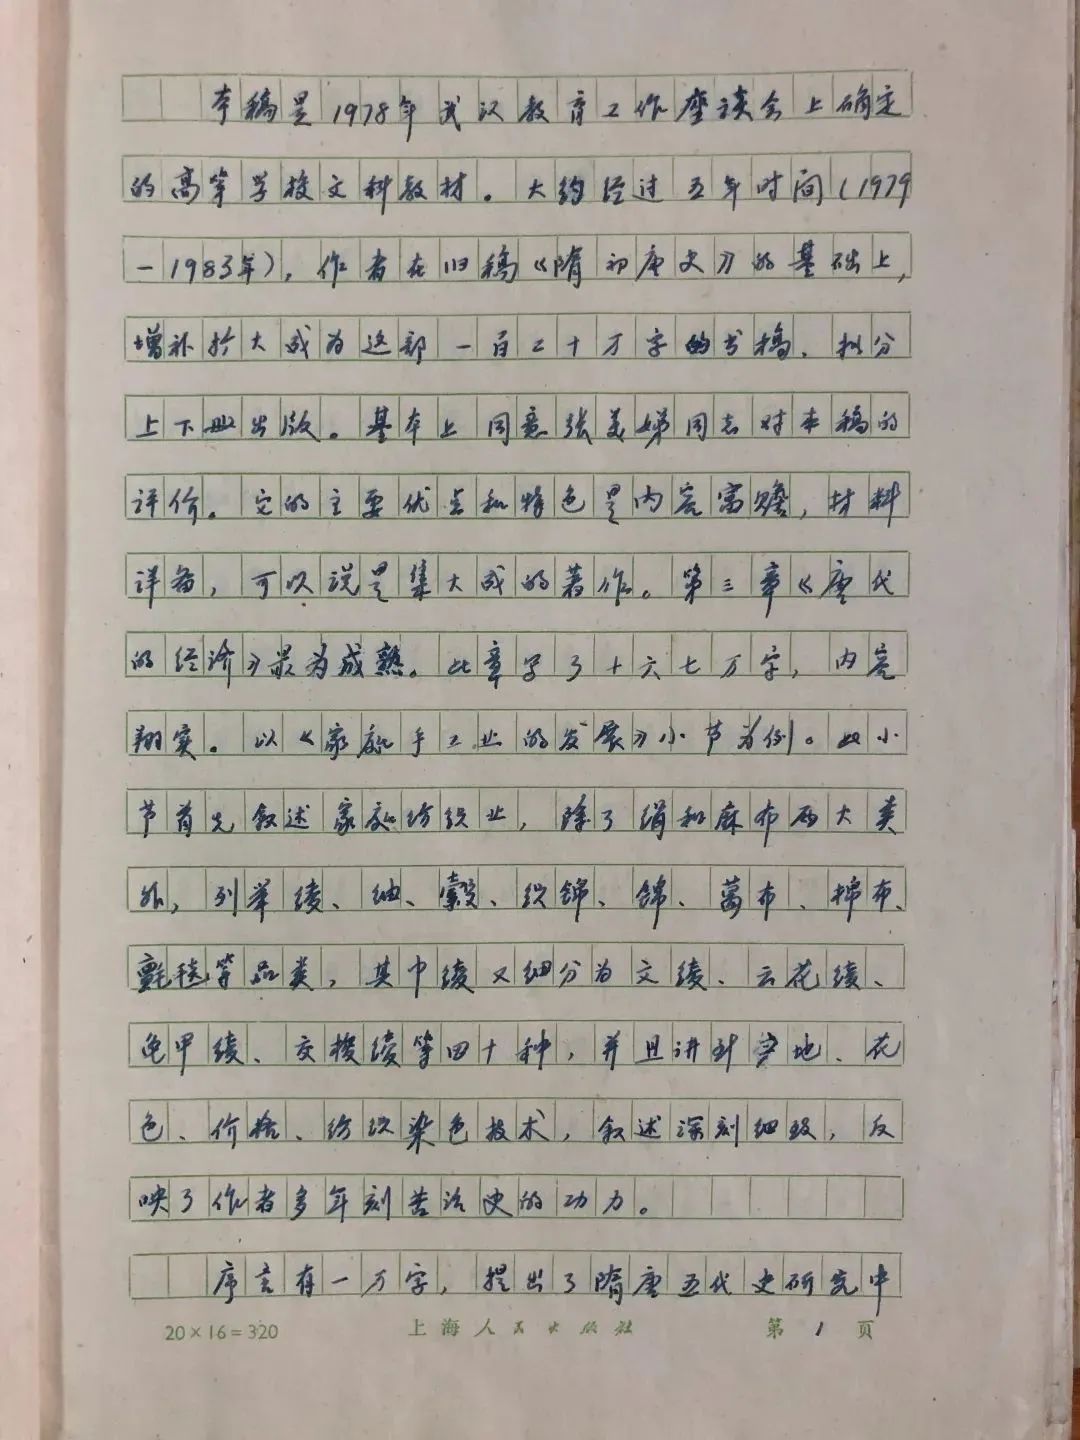 本稿是1978年武汉教育工作座谈会上确定
的高等学校文科教材。大约经过五年时间(1979
—1983年)，作者在旧稿《隋初唐史》的基础上，
增补扩大成为这部一百二十万字的书稿、拟分
上下册出版。基本上同意张美娣同志对本稿的
评价。它的主要优点和特色是内容富赡，材料
详备，可以说是集大成的著作。第三章《唐代
的经济》最为成熟。此章字了十六七万字，内容
翔实。以《家庭手工业的发展》小节为例。此小
节首先叙述家庭纺织业，除了绢和麻布两大类
外，列举绫、䌷、縠、织锦、锦、葛布、棉布、
氍毯等品类，其中绫又细分为文绫、云花绫、
龟甲绫、交梭绫等四十种，并且讲到产地、花
色、价格、纺织染色技术，叙述深刻细致，反
映了作者多年刻苦治史的功力。
序言有一万字，提出了隋唐五代史研究中
20×16=320 上海人民出版社 第1页